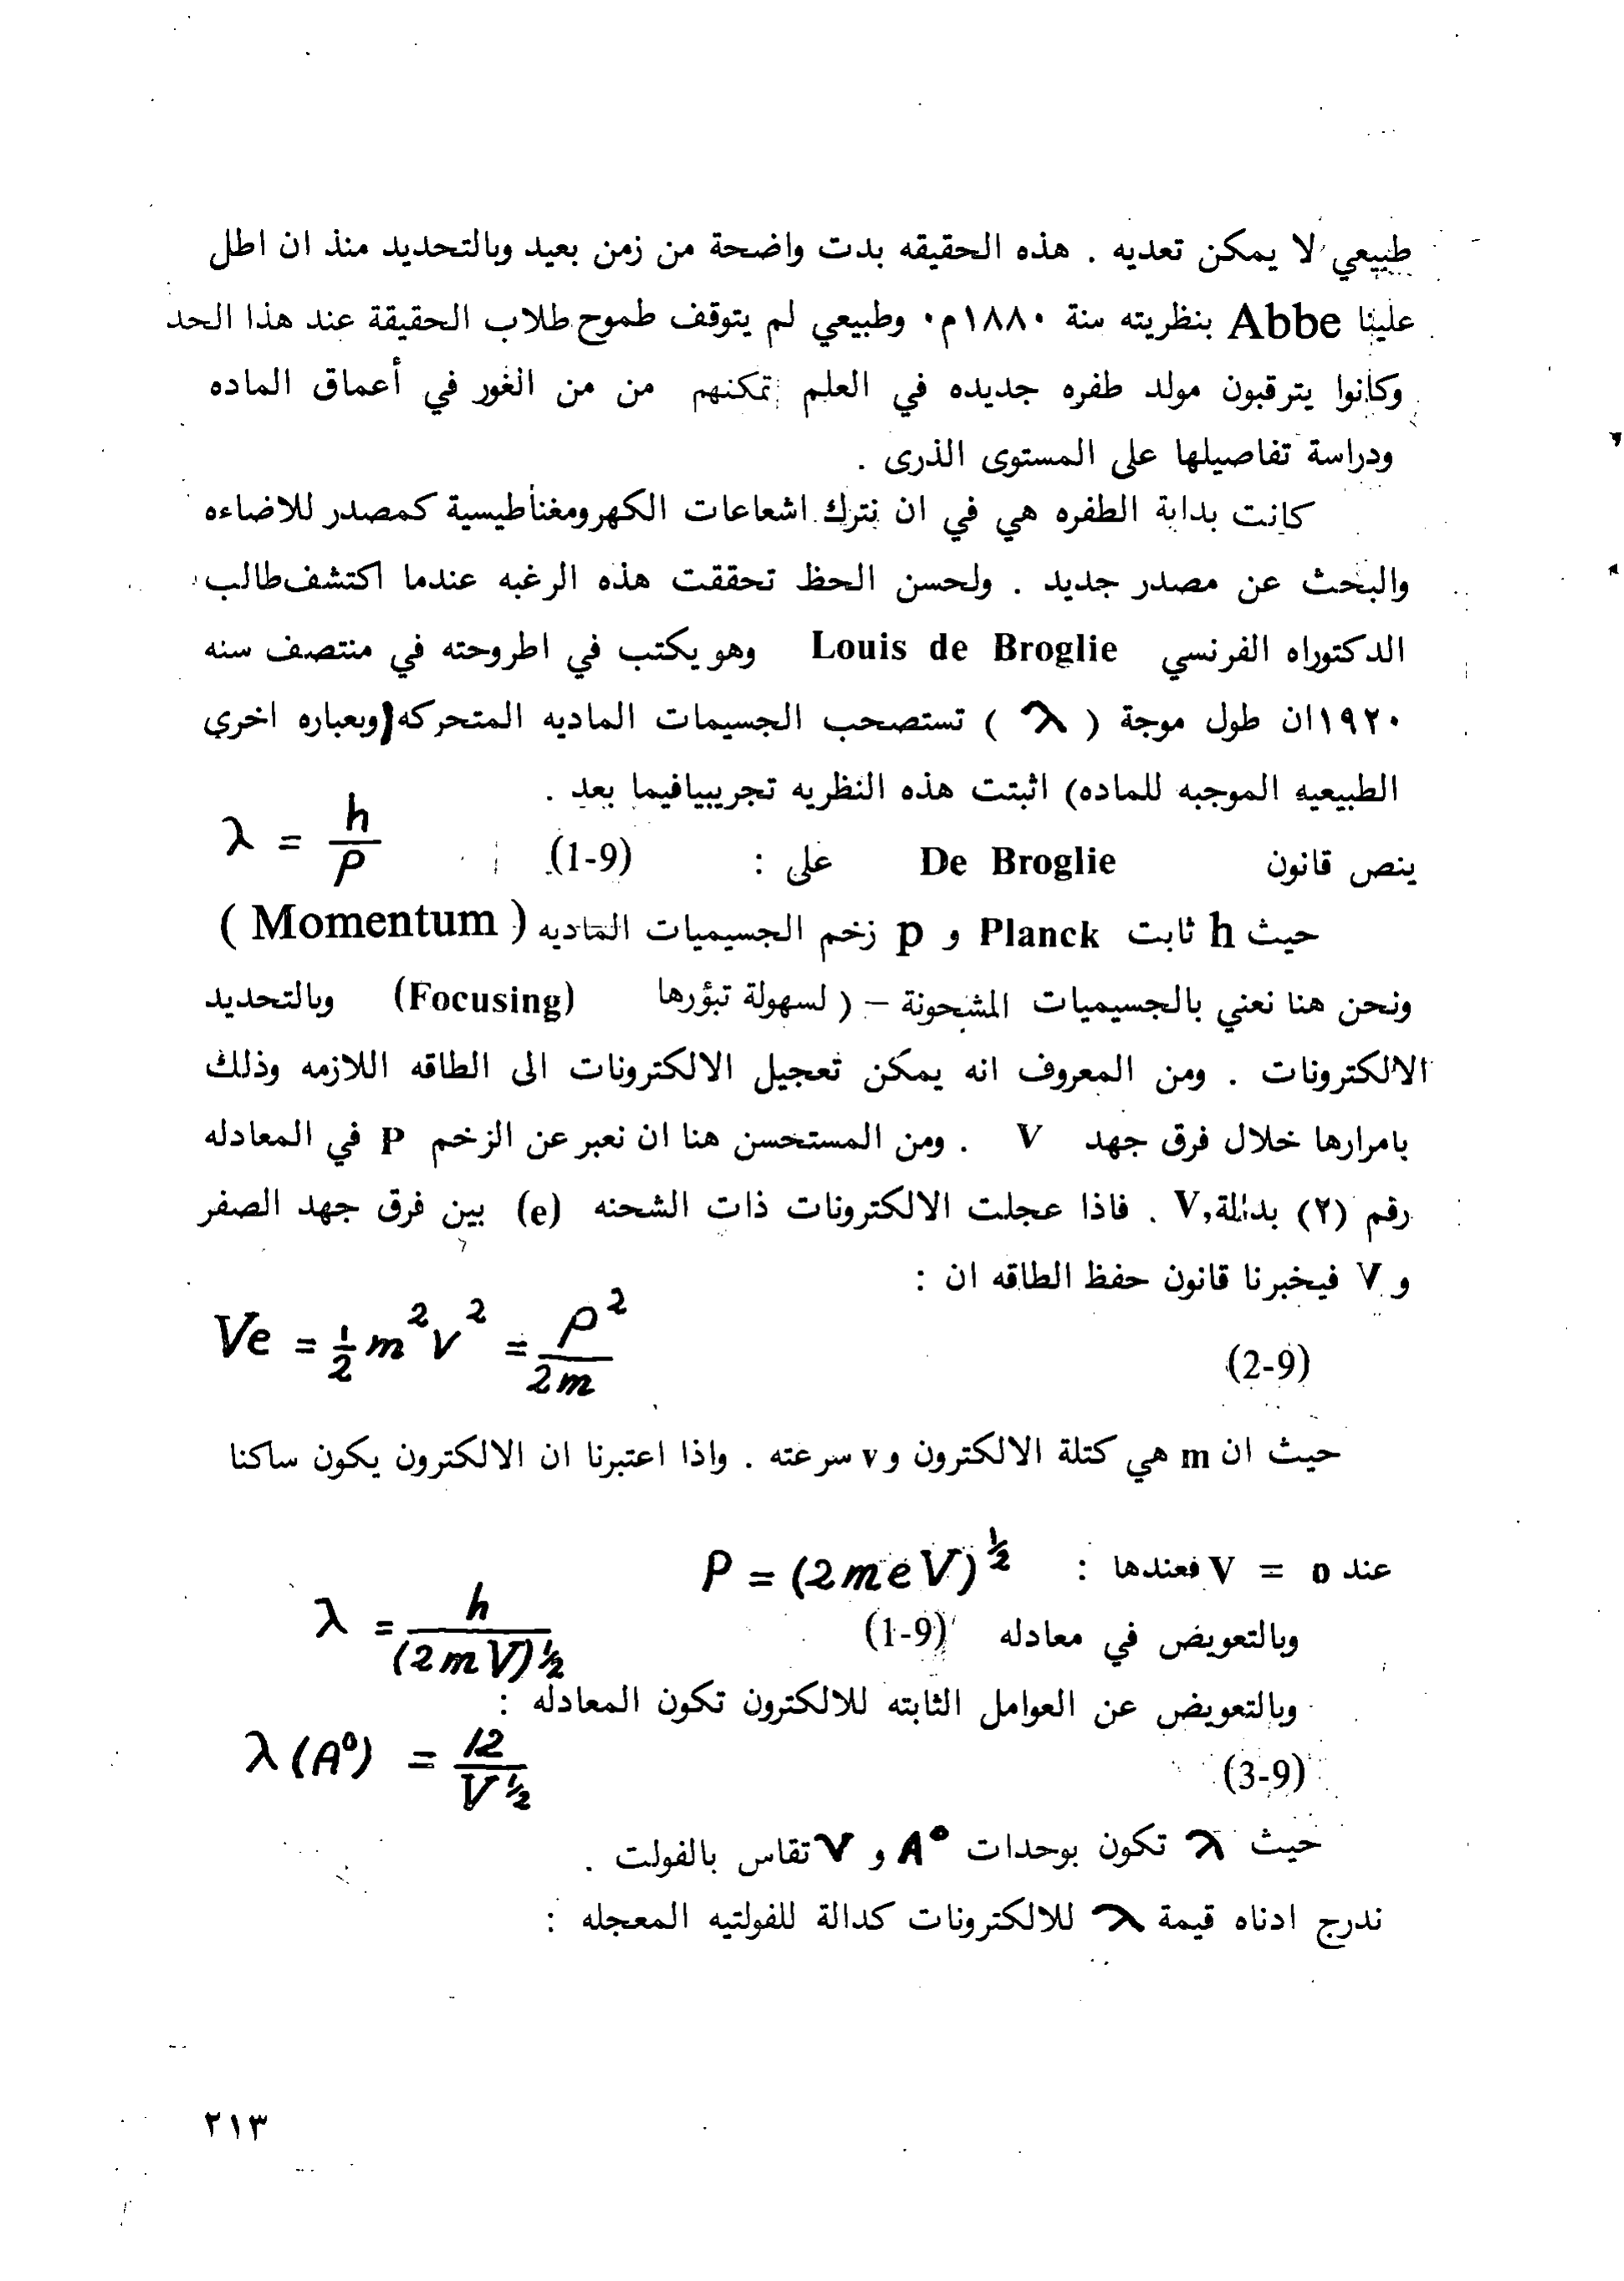 طبيعي لا يمكن تعديه . هذه الحقيقه بدت واضحة من زمن بعيد وبالتحديد منذ ان اطل
علينا Abbe بنظريته سنة ١٨٨٠م٠ وطبيعي لم يتوقف طموح طلاب الحقيقة عند هذا الحد
وكانوا يترقبون مولد طفره جديده في العلم تمكنهم من من الغور في أعماق الماده
ودراسة تفاصيلها على المستوى الذرى .
كانت بداية الطفره هي في ان نترك اشعاعات الكهرومغناطيسية كمصدر للاضاءه
والبحث عن مصدر جديد . ولحسن الحظ تحققت هذه الرغبه عندما اكتشف طالب
الدكتوراه الفرنسي Louis de Broglie وهو يكتب في اطروحته في منتصف سنه
١٩٢٠ ان طول موجة ( λ ) تستصحب الجسيمات الماديه المتحركه (وبعباره اخري
الطبيعيه الموجبه للماده) اثبتت هذه النظريه تجريبيافيما بعد .
ينص قانون De Broglie على : (1-9) λ = h/P
حيث h ثابت Planck و p زخم الجسيميات الماديه ( Momentum )
ونحن هنا نعني بالجسيميات المشحونة – ( لسهولة تبؤرها (Focusing) وبالتحديد
الالكترونات . ومن المعروف انه يمكن تعجيل الالكترونات الى الطاقه اللازمه وذلك
بامرارها خلال فرق جهد V . ومن المستحسن هنا ان نعبر عن الزخم P في المعادله
رقم (٢) بدالة V, . فاذا عجلت الالكترونات ذات الشحنه (e) بين فرق جهد الصفر
و V فيخبرنا قانون حفظ الطاقه ان :
(2-9) Ve = ½ m² v² = P²/2m
حيث ان m هي كتلة الالكترون و v سرعته . واذا اعتبرنا ان الالكترون يكون ساكنا
عند V = 0 فعندها : P = (2meV)^½
وبالتعويض في معادله (1-9) λ = h/(2mV)^½
وبالتعويض عن العوامل الثابته للالكترون تكون المعادله :
(3-9) λ(A⁰) = 12/V^½
حيث λ تكون بوحدات A⁰ و V تقاس بالفولت .
ندرج ادناه قيمة λ للالكترونات كدالة للفولتيه المعجله :
٢١٣